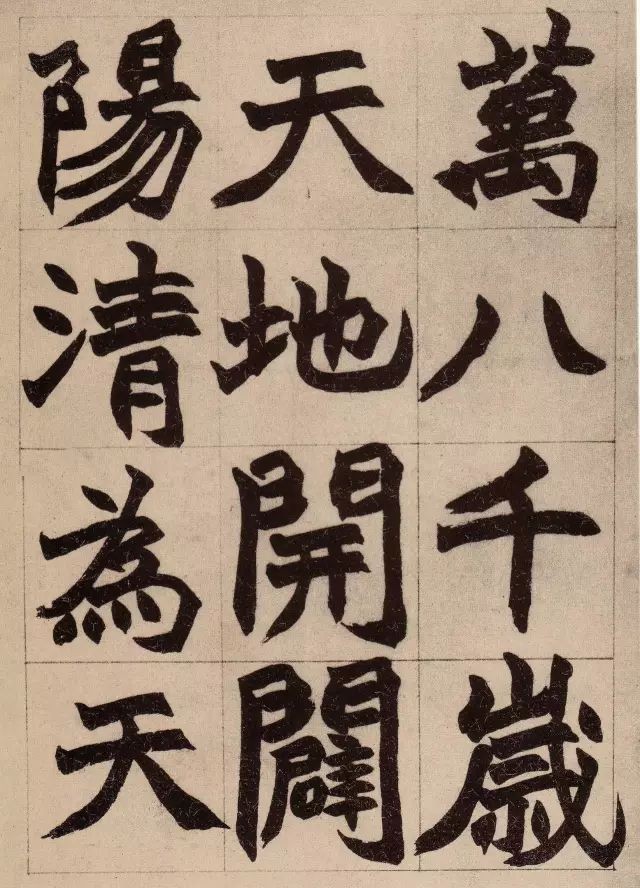 萬八千歲
天地開闢
陽清為天